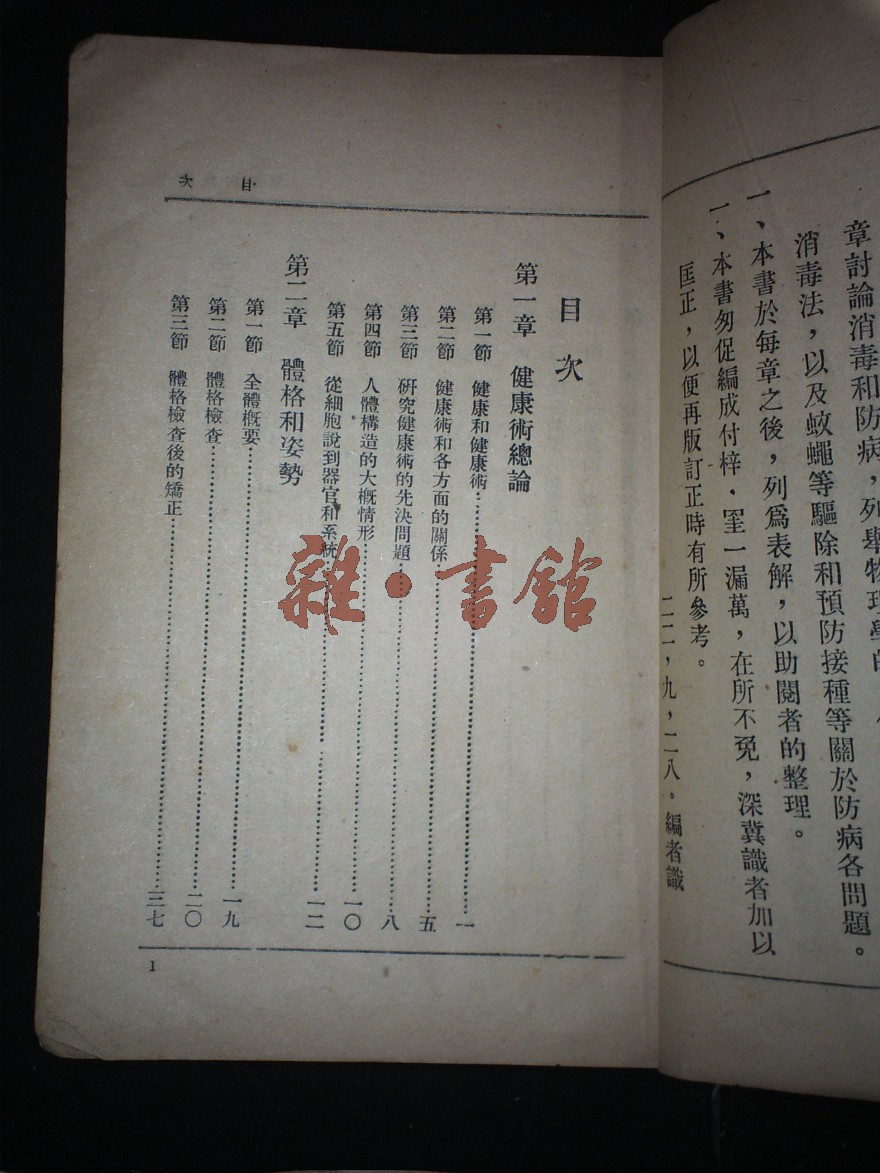 章討論消毒和防病，列舉物理學的
消毒法，以及蚊蠅等驅除和預防接種等關於防病各問題。
一、本書於每章之後，列爲表解，以助閱者的整理。
一、本書匆促編成付梓．罣一漏萬，在所不免，深冀識者加以
匡正，以便再版訂正時有所參考。
二二，九，二八。編者識
目次
目次
第一章 健康術總論
第一節 健康和健康術……一
第二節 健康術和各方面的關係……五
第三節 研究健康術的先決問題……八
第四節 人體構造的大概情形……一〇
第五節 從細胞說到器官和系統……一二
第二章 體格和姿勢
第一節 全體概要……一九
第二節 體格檢查……二〇
第三節 體格檢查後的矯正……三七
1
雜·書館